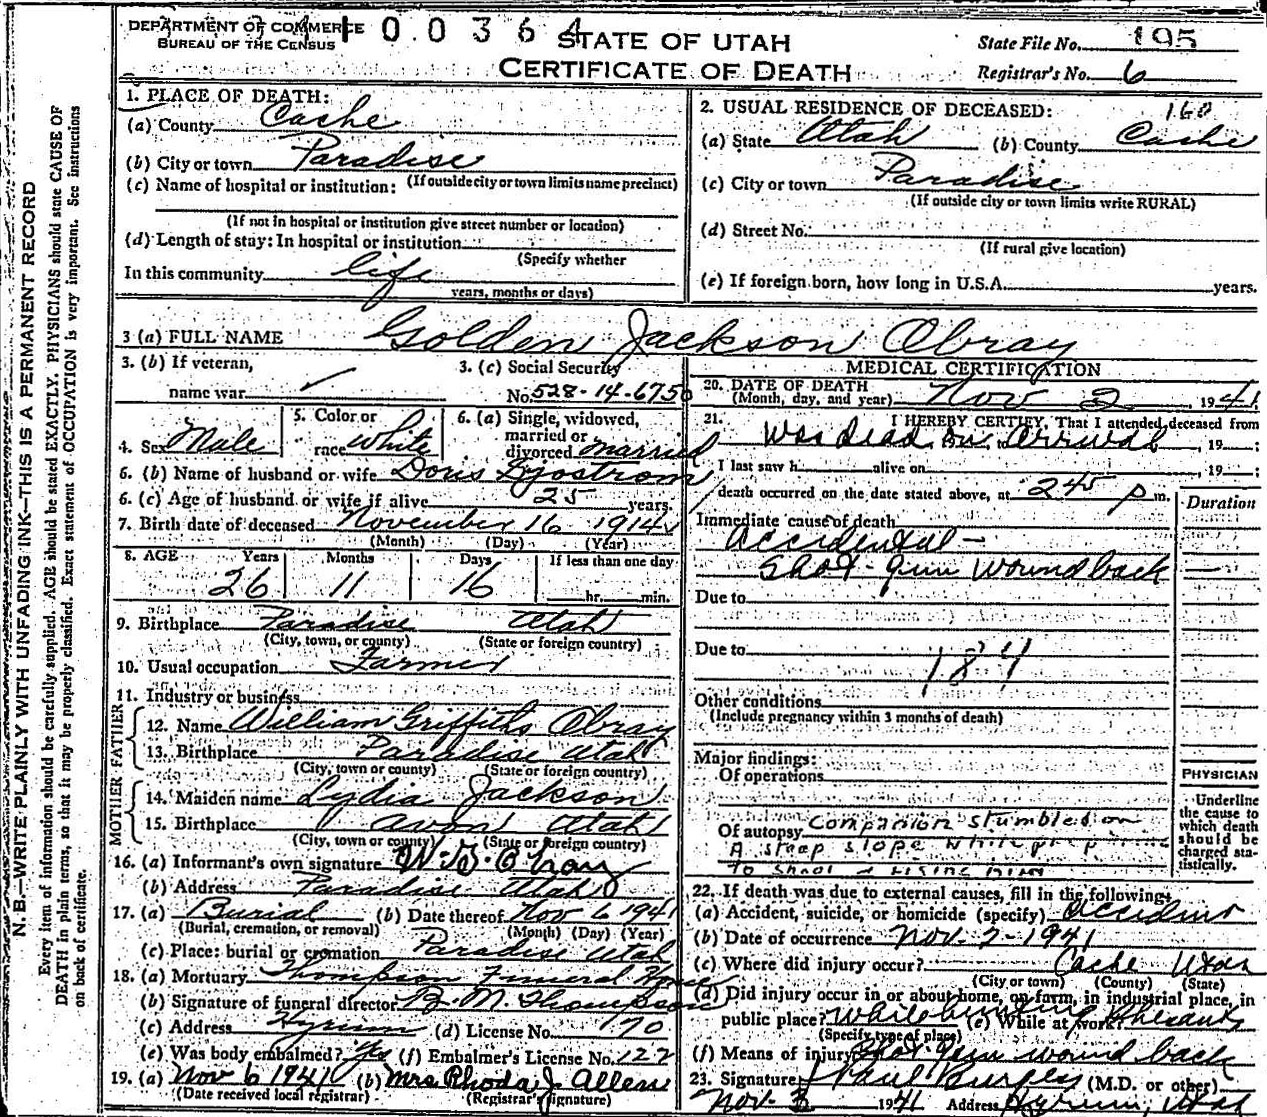 DEPARTMENT OF COMMERCE
BUREAU OF THE CENSUS
100364
STATE OF UTAH
CERTIFICATE OF DEATH
State File No. 195
Registrar's No. 6
N. B.—WRITE PLAINLY WITH UNFADING INK—THIS IS A PERMANENT RECORD
Every item of information should be carefully supplied. AGE should be stated EXACTLY. PHYSICIANS should state CAUSE OF
DEATH in plain terms, so that it may be properly classified. Exact statement of OCCUPATION is very important. See instructions
on back of certificate.
1. PLACE OF DEATH:
(a) County Cache
(b) City or town Paradise
(c) Name of hospital or institution: (If outside city or town limits name precinct)
(If not in hospital or institution give street number or location)
(d) Length of stay: In hospital or institution
(Specify whether
In this community life
years, months or days)
2. USUAL RESIDENCE OF DECEASED: 160
(a) State Utah (b) County Cache
(c) City or town Paradise
(If outside city or town limits write RURAL)
(d) Street No.
(If rural give location)
(e) If foreign born, how long in U.S.A. years.
3 (a) FULL NAME Golden Jackson Obray
3. (b) If veteran,
name war ✓
3. (c) Social Security
No. 528-14-6750
4. Sex Male
5. Color or
race white
6. (a) Single, widowed,
married or
divorced married
6. (b) Name of husband or wife Doris
6. (c) Age of husband or wife if alive 25 years.
7. Birth date of deceased November 16 1914
(Month) (Day) (Year)
8. AGE Years Months Days If less than one day
26 11 16 hr. min.
9. Birthplace Paradise Utah
(City, town, or county) (State or foreign country)
10. Usual occupation Farmer
11. Industry or business
FATHER
12. Name William Griffiths Obray
13. Birthplace Paradise Utah
(City, town or county) (State or foreign country)
MOTHER
14. Maiden name Lydia Jackson
15. Birthplace Avon Utah
(City, town, or county) (State or foreign country)
16. (a) Informant's own signature W. G. Obray
(b) Address Paradise Utah
17. (a) Burial (b) Date thereof Nov 6 1941
(Burial, cremation, or removal) (Month) (Day) (Year)
(c) Place: burial or cremation Paradise Utah
18. (a) Mortuary Thompson Funeral Home
(b) Signature of funeral director B. M. Thompson
(c) Address Hyrum (d) License No. 70
(e) Was body embalmed? Yes (f) Embalmer's License No. 122
19. (a) Nov 6 1941 (b) Mrs Rhoda J. Allen
(Date received local registrar) (Registrar's signature)
MEDICAL CERTIFICATION
20. DATE OF DEATH
(Month, day, and year) Nov 2, 1941
21. I HEREBY CERTIFY, That I attended deceased from
Was dead on arrival, 19 :
I last saw h alive on , 19 :
death occurred on the date stated above, at 245 p m.
Duration
Immediate cause of death
Accidental —
Shot-gun wound back
Due to
Due to
184
Other conditions
(Include pregnancy within 3 months of death)
Major findings:
Of operations
PHYSICIAN
Underline
the cause to
which death
should be
charged sta-
tistically.
Of autopsy companion stumbled on
A steep slope while
to shoot
22. If death was due to external causes, fill in the following:
(a) Accident, suicide, or homicide (specify) Accident
(b) Date of occurrence Nov-2-1941
(c) Where did injury occur? Cache Utah
(City or town) (County) (State)
(d) Did injury occur in or about home, on farm, in industrial place, in
public place? While hunting Pheasants (e) While at work?
(Specify type of place)
(f) Means of injury Shot Gun wound back
23. Signature Paul Burgess (M.D. or other)
Nov. 3 1941 Address Hyrum, Utah